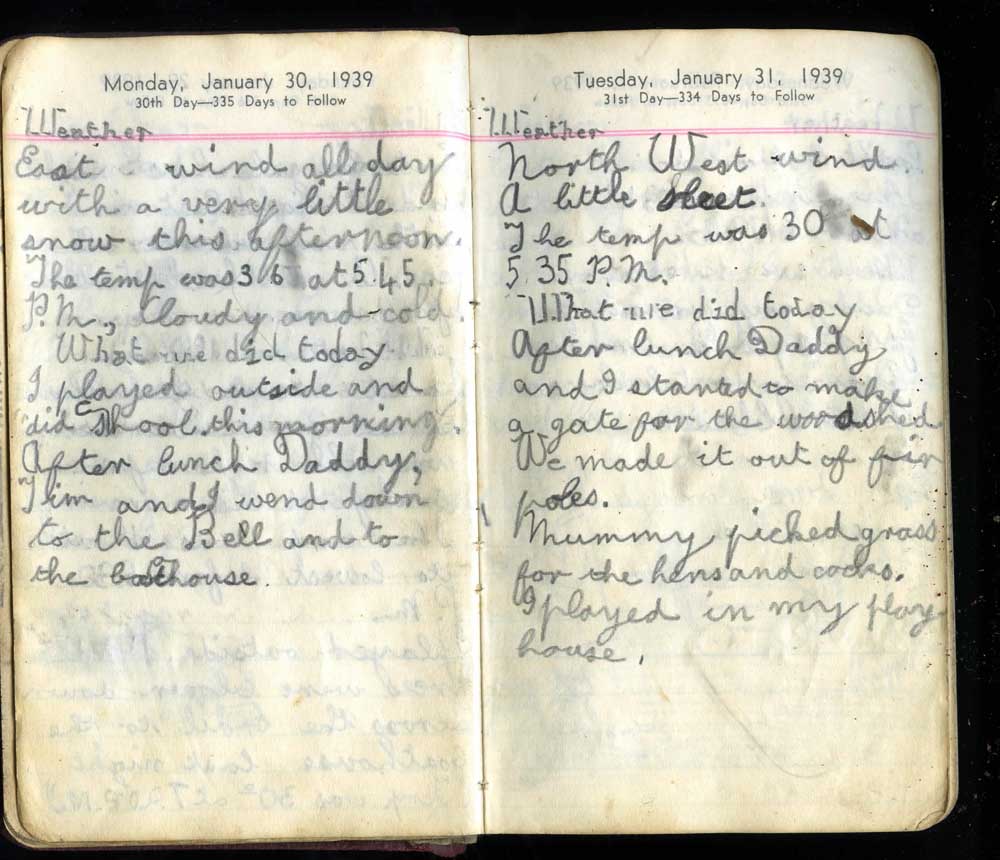 Monday, January 30, 1939
30th Day—335 Days to Follow
Weather
East wind all day
with a very little
snow this afternoon.
The temp was 36 at 5.45.
P.M., Cloudy and cold.
What we did today
I played outside and
did School this morning.
After lunch Daddy,
Tim and I wend down
to the Bell and to
the boathouse.
Tuesday, January 31, 1939
31st Day—334 Days to Follow
Weather
North West wind.
A little sleet.
The temp was 30 at
5.35 P.M.
What we did today
After lunch Daddy
and I started to make
a gate for the woodshed
We made it out of fir
poles.
Mummy picked grass
for the hens and cocks.
I played in my play
house.